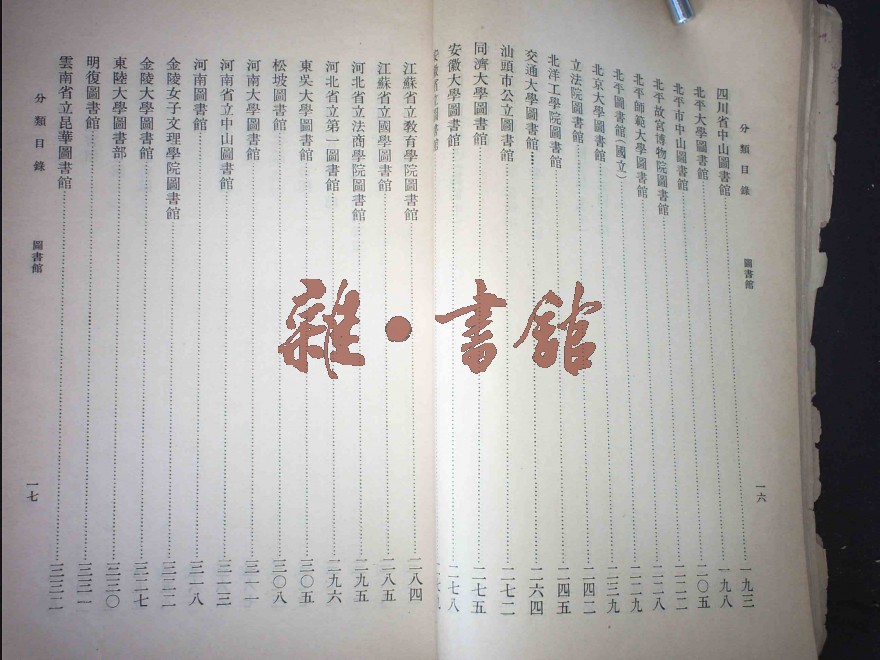 分類目錄 圖書館 一六
四川省中山圖書館……一九三
北平大學圖書館……一九八
北平市中山圖書館……二〇五
北平故宮博物院圖書館……二二二
北平師範大學圖書館……二二八
北平圖書館(國立)……二二九
北京大學圖書館……二三九
立法院圖書館……二四二
北洋工學院圖書館……二四五
交通大學圖書館……二六四
汕頭市公立圖書館……二七二
同濟大學圖書館……二七五
安徽大學圖書館……二七八
安徽省立圖書館……
江蘇省立教育學院圖書館……二八四
江蘇省立國學圖書館……二八五
河北省立法商學院圖書館……二九五
河北省立第一圖書館……二九六
東吳大學圖書館……三〇五
松坡圖書館……三〇八
河南大學圖書館……三一一
河南省立中山圖書館……三一三
河南圖書館……三一八
金陵女子文理學院圖書館……三二二
金陵大學圖書館……三二七
東陸大學圖書部……三三〇
明復圖書館……三三一
雲南省立昆華圖書館……三三二
分類目錄 圖書館 一七
雜·書館